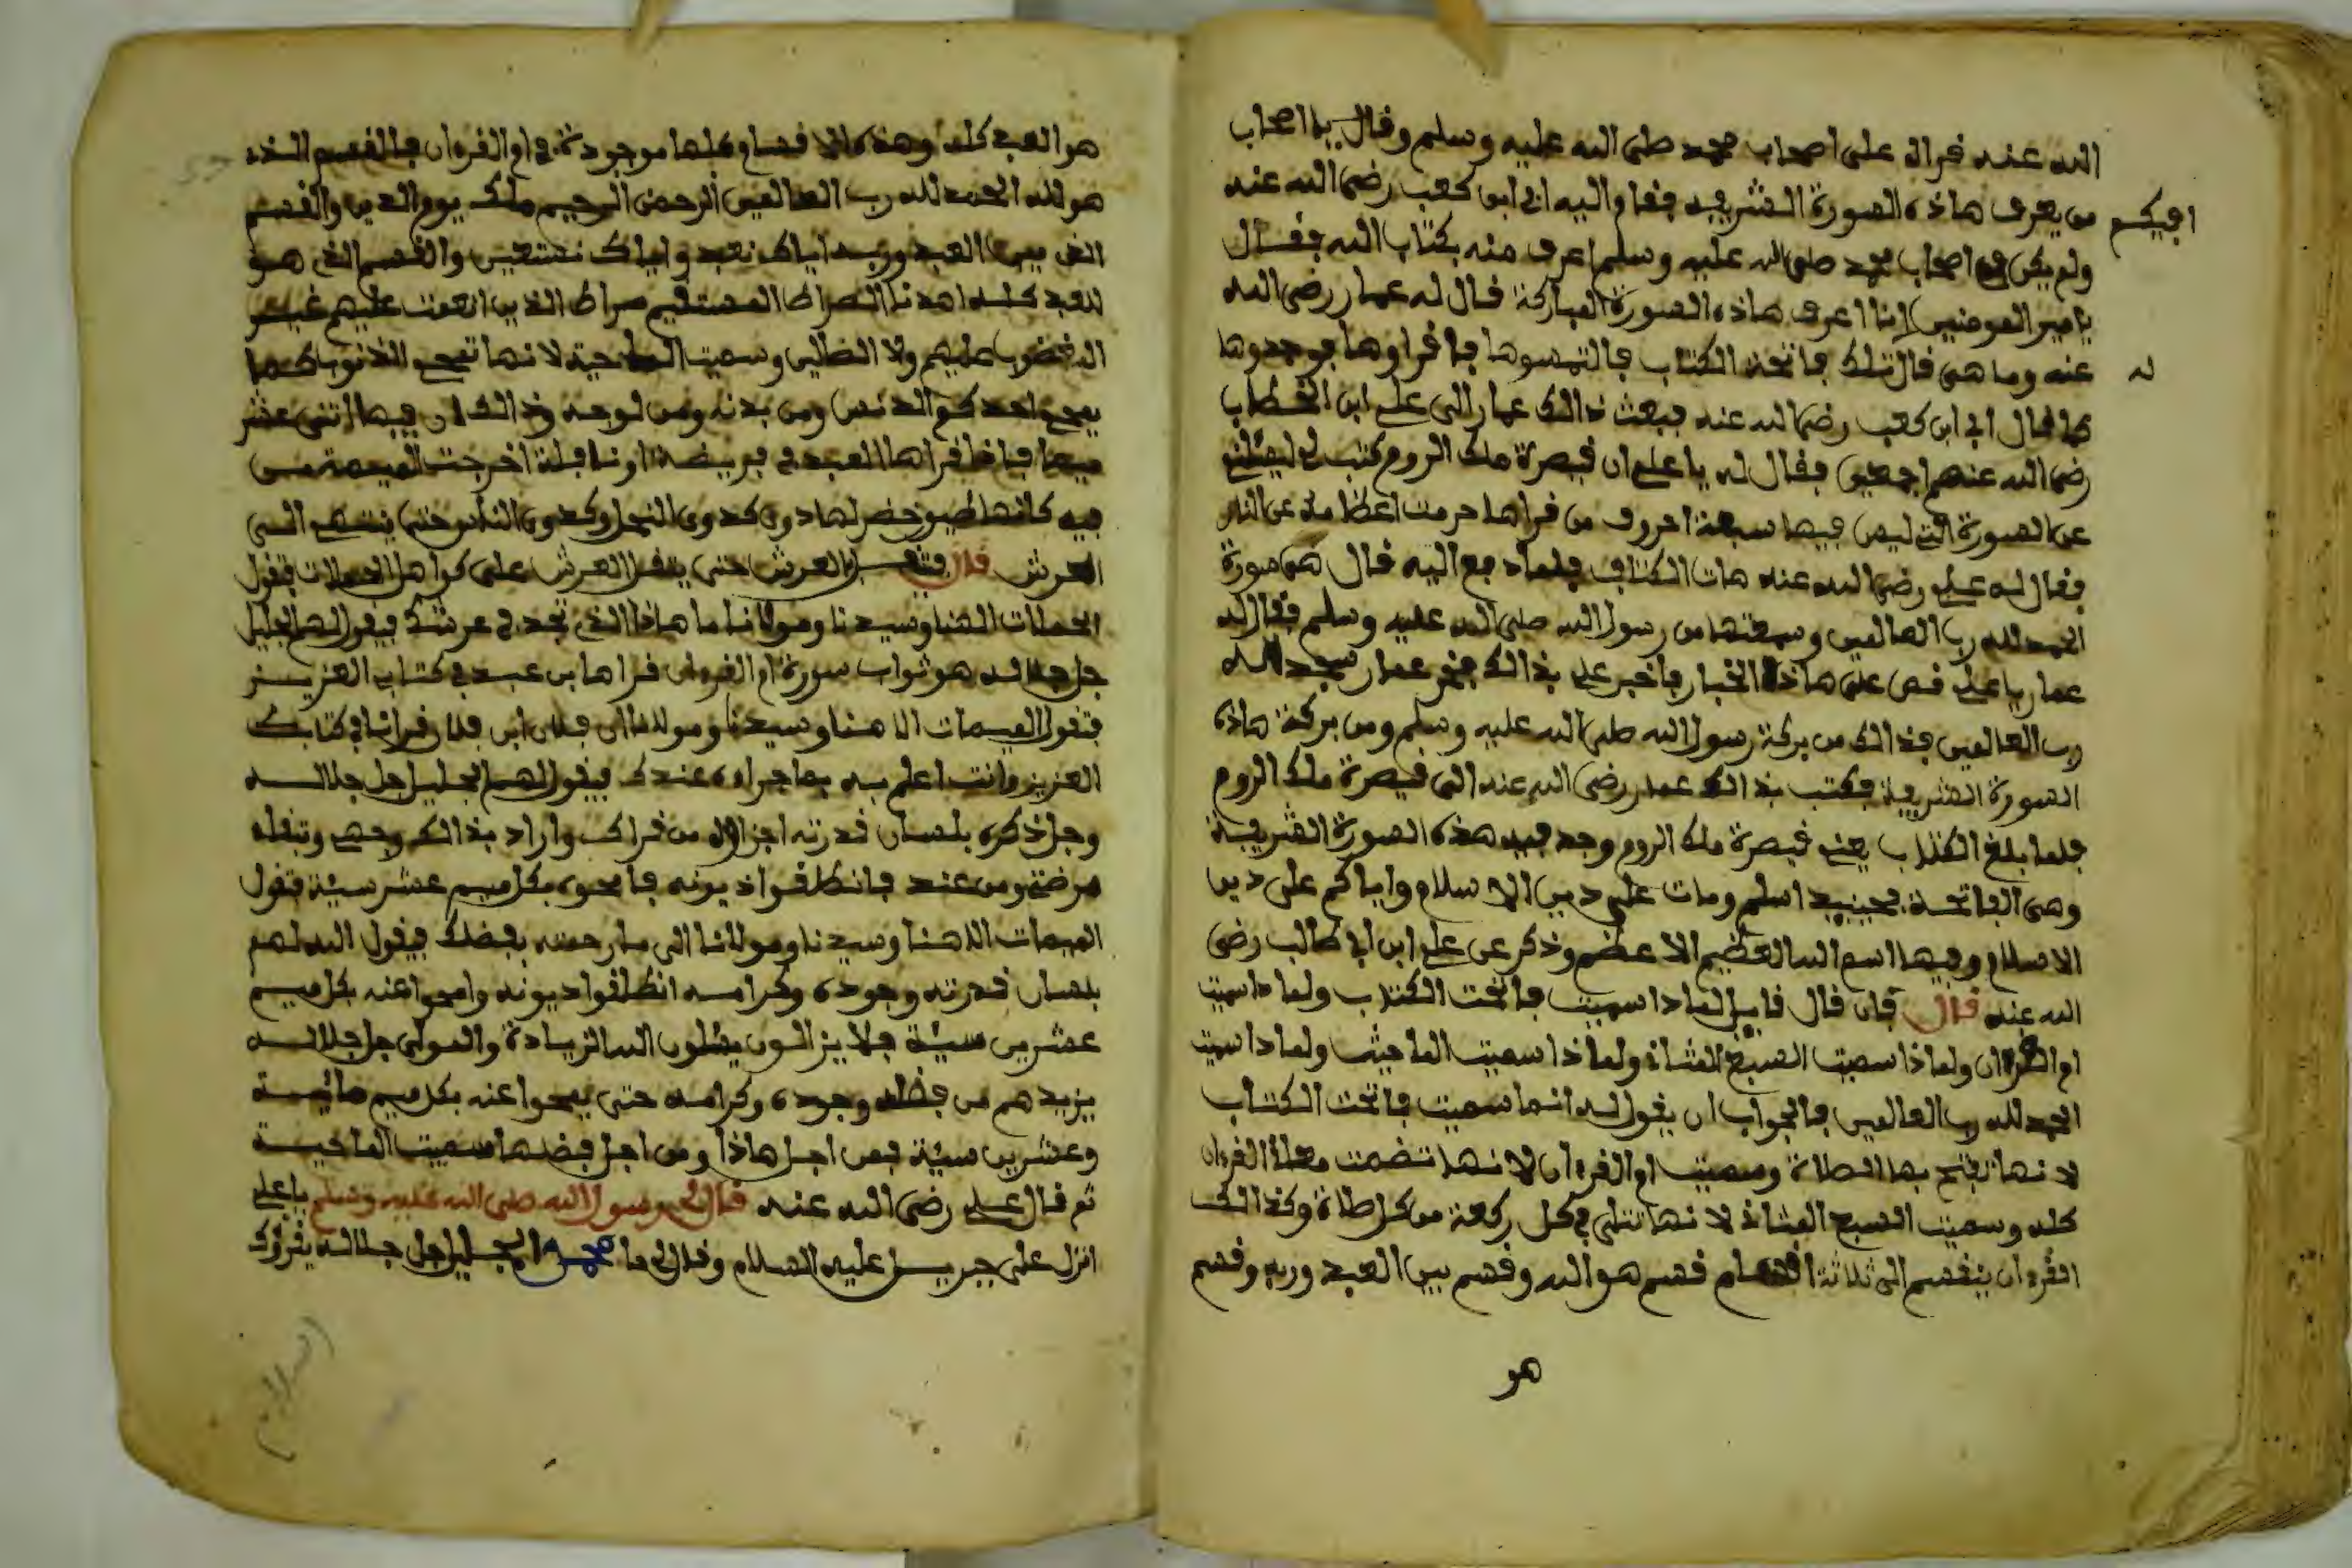 الله عنه قراه على اصحاب محمد صلى الله عليه وسلم وقال يا اصحاب
من يعرف هاذه السورة الشريفه فقام اليه ابي ابن كعب رضي الله عنه
افيكم
ولم يكن في اصحاب محمد صلى الله عليه وسلم اعرف منه بكتاب الله فقال
يا امير المومنين انا اعرف هاذه السورة المباركة قال له عمار رضي الله
عنه وما هي قال تلك فاتحة الكتاب فالتمسوها فاقراوها فوجدوها
له
كما قال ابي ابن كعب رضي الله عنه فبعث ذالك عمار الى علي ابن الخطاب
رضي الله عنهم اجمعين فقال له يا علي ان قيصرة ملك الروم كتب لي ليسئلني
عن السورة التي ليس فيها سبعة احروف من قراها حرمت اعظامه عن النار
فقال له علي رضي الله عنه هات الكتاب فلما دفع اليه قال هي سورة
الحمد لله رب العالمين وسمعتها من رسول الله صلى الله عليه وسلم فقال له
عمار يا علي قص علي هاذه الخبار فاخبر علي بذالك فخر عمار سجد لله
رب العالمين فذالك من بركة رسول الله صلى الله عليه وسلم ومن بركة هاذه
السورة الشريفة فكتب بذالك عمار رضي الله عنه الى قيصرة ملك الروم
فلما بلغ الكتاب يعني قيصرة ملك الروم وجد فيه هذه السورة الشريفة
وهي الفاتحة فحينيد اسلم ومات على دين الاسلام واياكم على دين
الاسلام وفيها اسم الله العظيم الاعظم وذكر عن علي ابن ابي طالب رضي
الله عنه قال فان قال قايل لما دا سميت فاتحت الكتاب ولما دا سميت
ام القرءان ولما ذا سميت السبع المثاني ولما ذا سميت الماحيت ولما دا سميت
الحمد لله رب العالمين فالجواب ان يقول له انما سميت فاتحت الكتاب
لانها تفتح بها الصلاة وسميت ام القرءان لانها تضمت معناه القرءان
كله وسميت السبع المثاني لانها تتلى في كل ركعة من كل صلاة وكذالك
القرءان ينقسم الى ثلاثة اقسام قسم هو الله وقسم بين العبد وربه وقسم
هو
هو العبد كله وهذه الاقسام كلها موجودة في ام القرءان فالقسم الذي
هو لله الحمد لله رب العالمين الرحمن الرحيم ملك يوم الدين والقسم
الذي بين العبد وربه اياك نعبد واياك نستعين والقسم الذي هو
للعبد كله اهدنا الصراط المستقيم صراط الذين انعمت عليهم غير
المغضوب عليهم ولا الضالين وسميت الماحية لانها تمحي الذنوب كما
يمحي احدكم الدنس ومن بدنه ومن لوجه وذالك ان فيها اثني عشر
ميما فاذا قراها العبد في فريضة او نافلة اخرجت الميمة من
فيه كانها طيور خضر لها دوي كدوي النحل وكدوي الناس حتى ينتهي الى
العرش قال فتعسل بالعرش حتى يثقل العرش على كواهل الحملات فتقول
الحملات الهنا وسيدنا ومولانا ما هاذا الذي تجدد في عرشك فيقول لهم الجليل
جل جلاله هو ثواب سورة ام القرءان قراها بن عبد في كتاب العزيز
فتقول الميمات الاهنا وسيدنا ومولانا ان فلان ابن فلان قرانا في كتابك
العزيز وانت اعلم به بما جزاوه عندك فيقول لهم الجليل جل جلاله
وجل ذكره بلسان قدرته اجزاوه من قراك واراد بذالك وجهي وتبغاه
مرضتي ومن عند فانطلقوا ذيونه فامحوه بكل ميم عشر سيئة فتقول
الميمات الاهنا وسيدنا ومولانا الى مار حمته بفضلك فيقول الله لهم
بلسان قدرته وجوده وكرامه انطلقوا ديونه وامحوا عنه بكل ميم
عشرين سيئة فلا يزالون يسئلون الله الزيادة والمولى جل جلاله
يزيدهم من فضله وجوده وكرامه حتى يمحوا عنه بكل ميم مائية
وعشرين سيئة فمن اجل هاذا ومن اجل فضلها سميت الماحية
ثم قال علي رضي الله عنه قال لي رسول الله صلى الله عليه وسلم يا علي
انزل علي جبريل عليه السلام وقال لي يا محمد الجليل جل جلاله يقرؤك
السلام